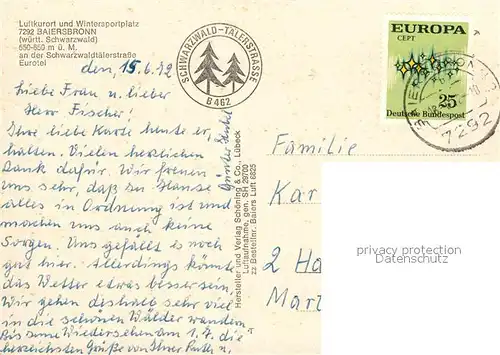 Luftkurort und Wintersportplatz
7292 BAIERSBRONN
(württ. Schwarzwald)
550-650 m ü. M.
an der Schwarzwaldtälerstraße
Eurotel
SCHWARZWALD-TÄLERSTRASSE
B 462
EUROPA
CEPT
25
Deutsche Bundespost
7292
den, 15.6.72
Liebe Frau u. lieber
Herr Fischer!
Ihre liebe Karte heute er,
halten. Vielen herzlichen
Dank dafür. Wir freuen
uns sehr, daß zu Hause
alles in Ordnung ist und
machen uns auch keine
Sorgen. Uns gefällt es noch
gut hier. Allerdings könnte
das Wetter etwas besser sein,
Wir gehen deshalb sehr viel
in die schönen Wälder wandern
Bis zum Wiedersehen am 1.7. die
herzlichsten Grüße von Ihrer Ruth u.
Günter
Hersteller und Verlag Schöning & Co., Lübeck
Luftaufnahme, gen. SH 29700
zz Bestellnr. Baiers Luft 6825
Familie
Kar
2 Ha
Mart
privacy protection
Datenschutz